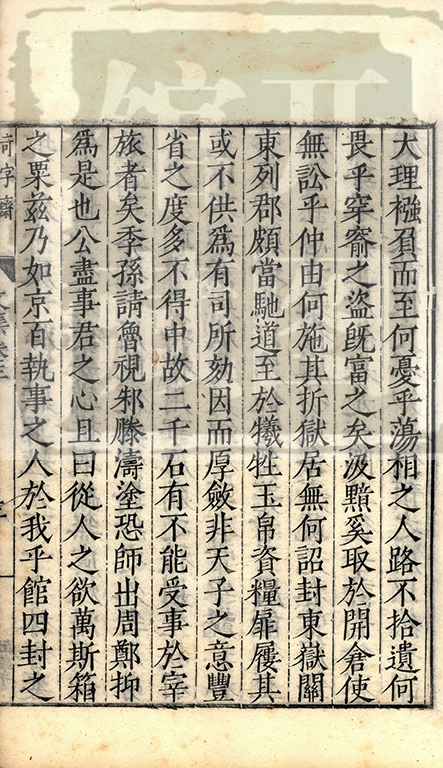 大理襁負而至何憂乎蕩相之人路不拾遺何
畏乎穿窬之盜旣富之矣汲黯奚取於開倉使
無訟乎仲由何施其折獄居無何詔封東嶽關
東列郡頗當馳道至於犧牲玉帛資糧扉屨其
或不供爲有司所劾因而厚斂非天子之意豐
省之度多不得中故二千石有不能受事於宰
旅者矣季孫請魯視邾滕濤塗恐師出周鄭抑
爲是也公盡事君之心且曰從人之欲萬斯箱
之粟茲乃如京百執事之人於我乎館四封之